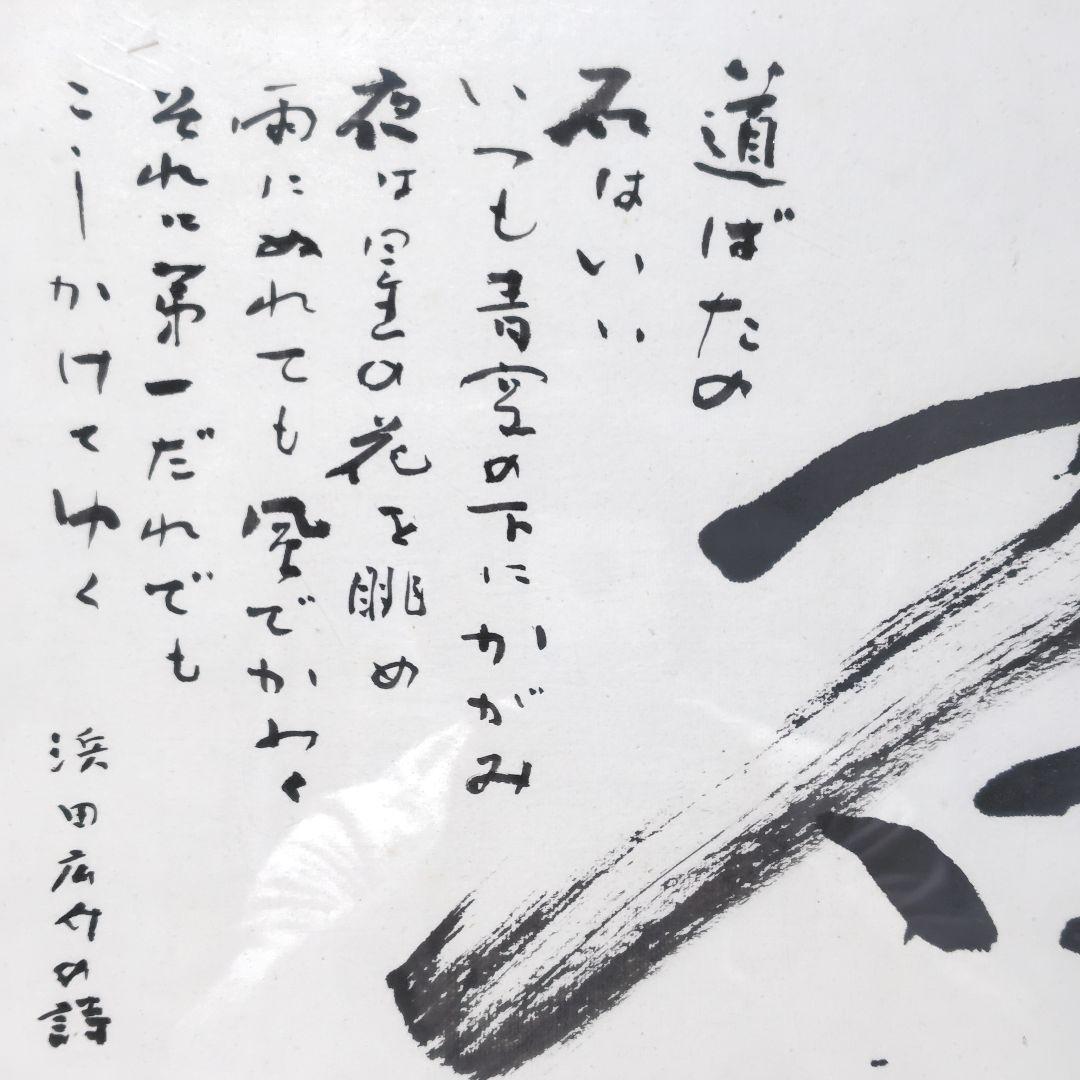 道ばたの
石はいい
いつも青空の下にかがみ
夜は星の花を眺め
雨にぬれても風でかわく
それに第一だれでも
こしかけてゆく
浜田広介の詩